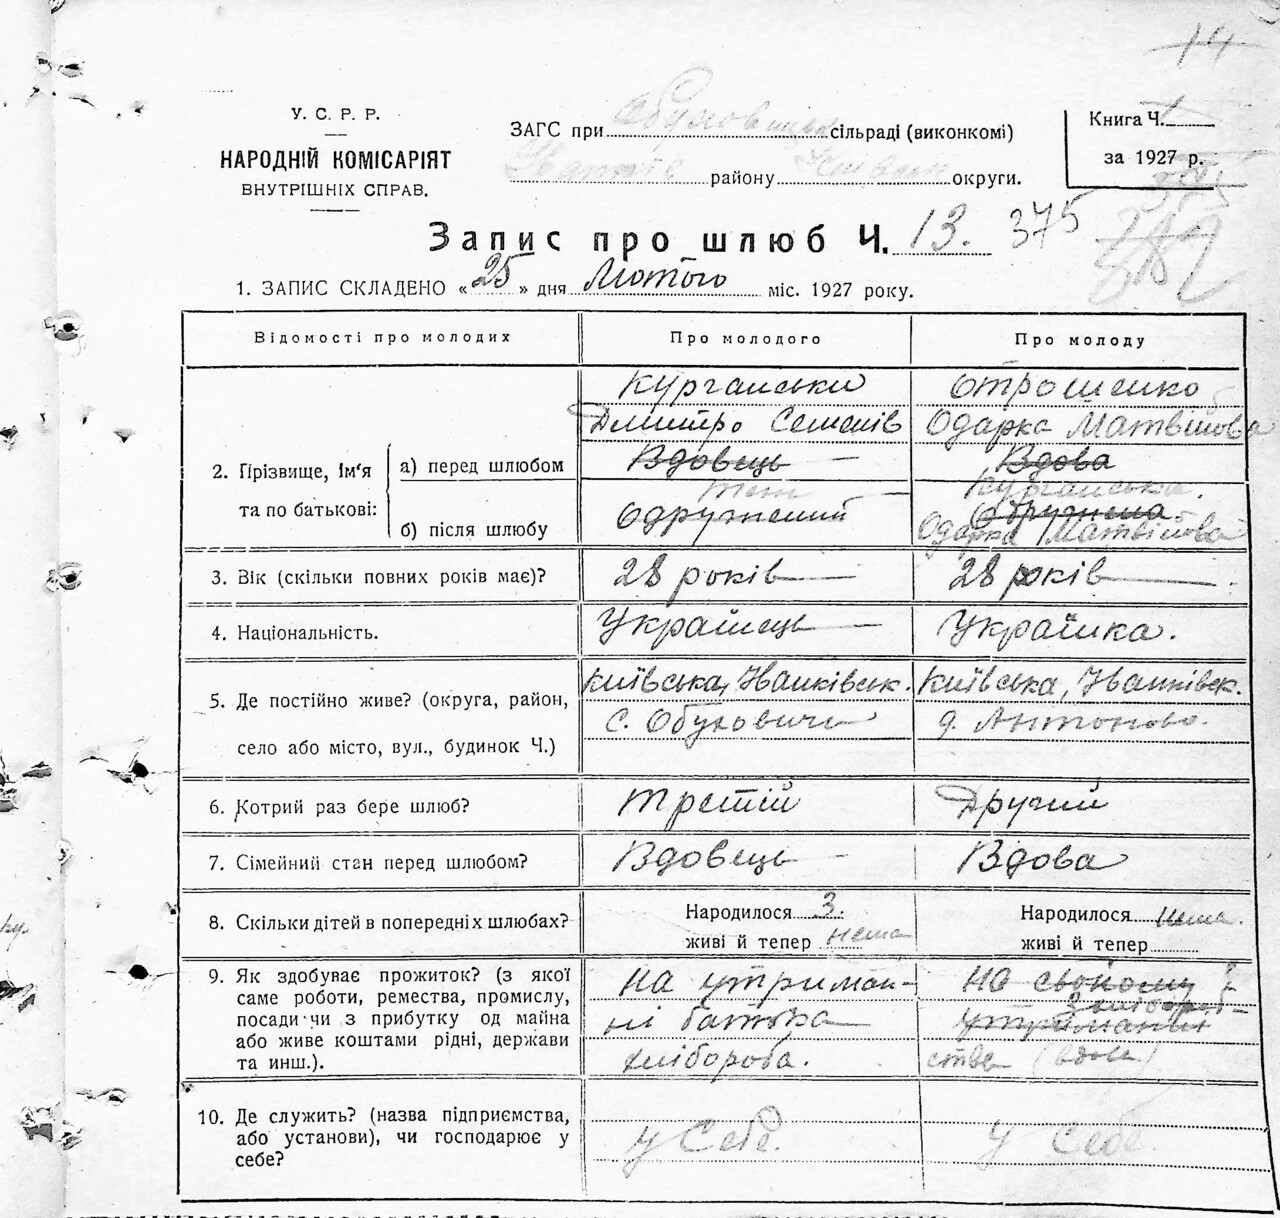 14
У. С. Р. Р.
НАРОДНІЙ КОМІСАРІЯТ
ВНУТРІШНІХ СПРАВ.
ЗАГС при Обуховицькій сільраді (виконкомі)
Іванків району Київськ округи.
Книга Ч. 1
за 1927 р.
Запис про шлюб Ч. 13. 375
1. ЗАПИС СКЛАДЕНО « 25 » дня Лютого міс. 1927 року.
Відомості про молодих Про молодого Про молоду
2. Прізвище, Ім'я та по батькові:
а) перед шлюбом
Курганськи
Дмитро Семенів
Вдовець
Отрошенко
Одарка Матвійова
Вдова
б) після шлюбу
теж
Одружений
Курганська.
Одружена
Одарка Матвійова
3. Вік (скільки повних років має)? 28 років 28 років
4. Національність. Украінець Украінка.
5. Де постійно живе? (округа, район,
село або місто, вул., будинок Ч.)
Київська, Іванківськ.
с. Обуховичи
Київська, Іванківськ.
д. Антоново.
6. Котрий раз бере шлюб? Третій Другий
7. Сімейний стан перед шлюбом? Вдовець Вдова
8. Скільки дітей в попередніх шлюбах?
Народилося 3.
живі й тепер нема
Народилося нема.
живі й тепер
9. Як здобуває прожиток? (з якої
саме роботи, ремества, промислу,
посади чи з прибутку од майна
або живе коштами рідні, держави
та инш.).
на утриман-
ні батька
хлібороба.
на свойому
утриманні
з хлібороб-
ства (вдова)
10. Де служить? (назва підприємства,
або установи), чи господарює у
себе?
у себе.
у себе.